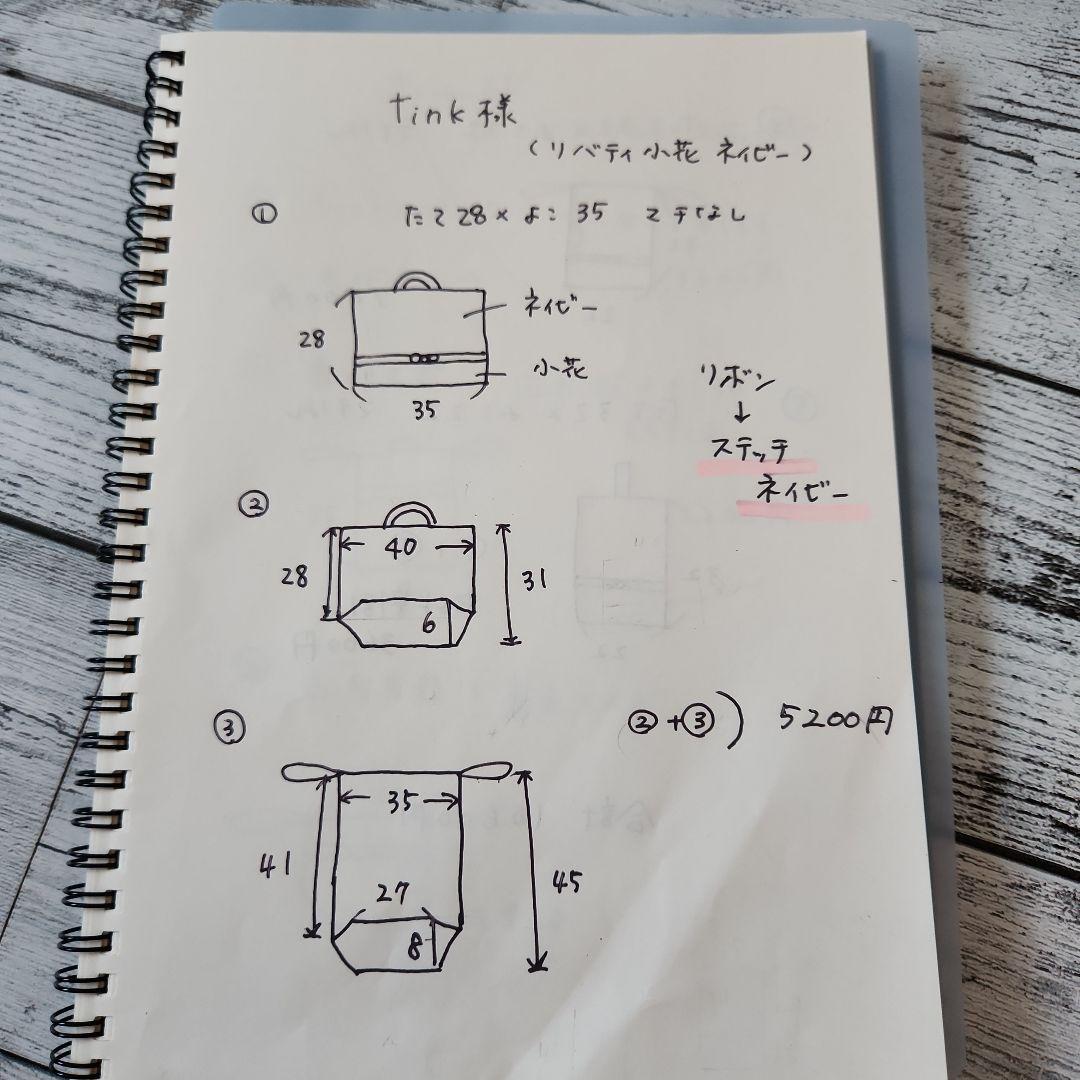 Tink様
(リバティ小花 ネイビー)
① たて28×よこ35 マチなし
ネイビー
28
小花
35
リボン
↓
ステッチ
ネイビー
②
40
28
31
6
②+③) 5200円
③
35
41
27
45
8